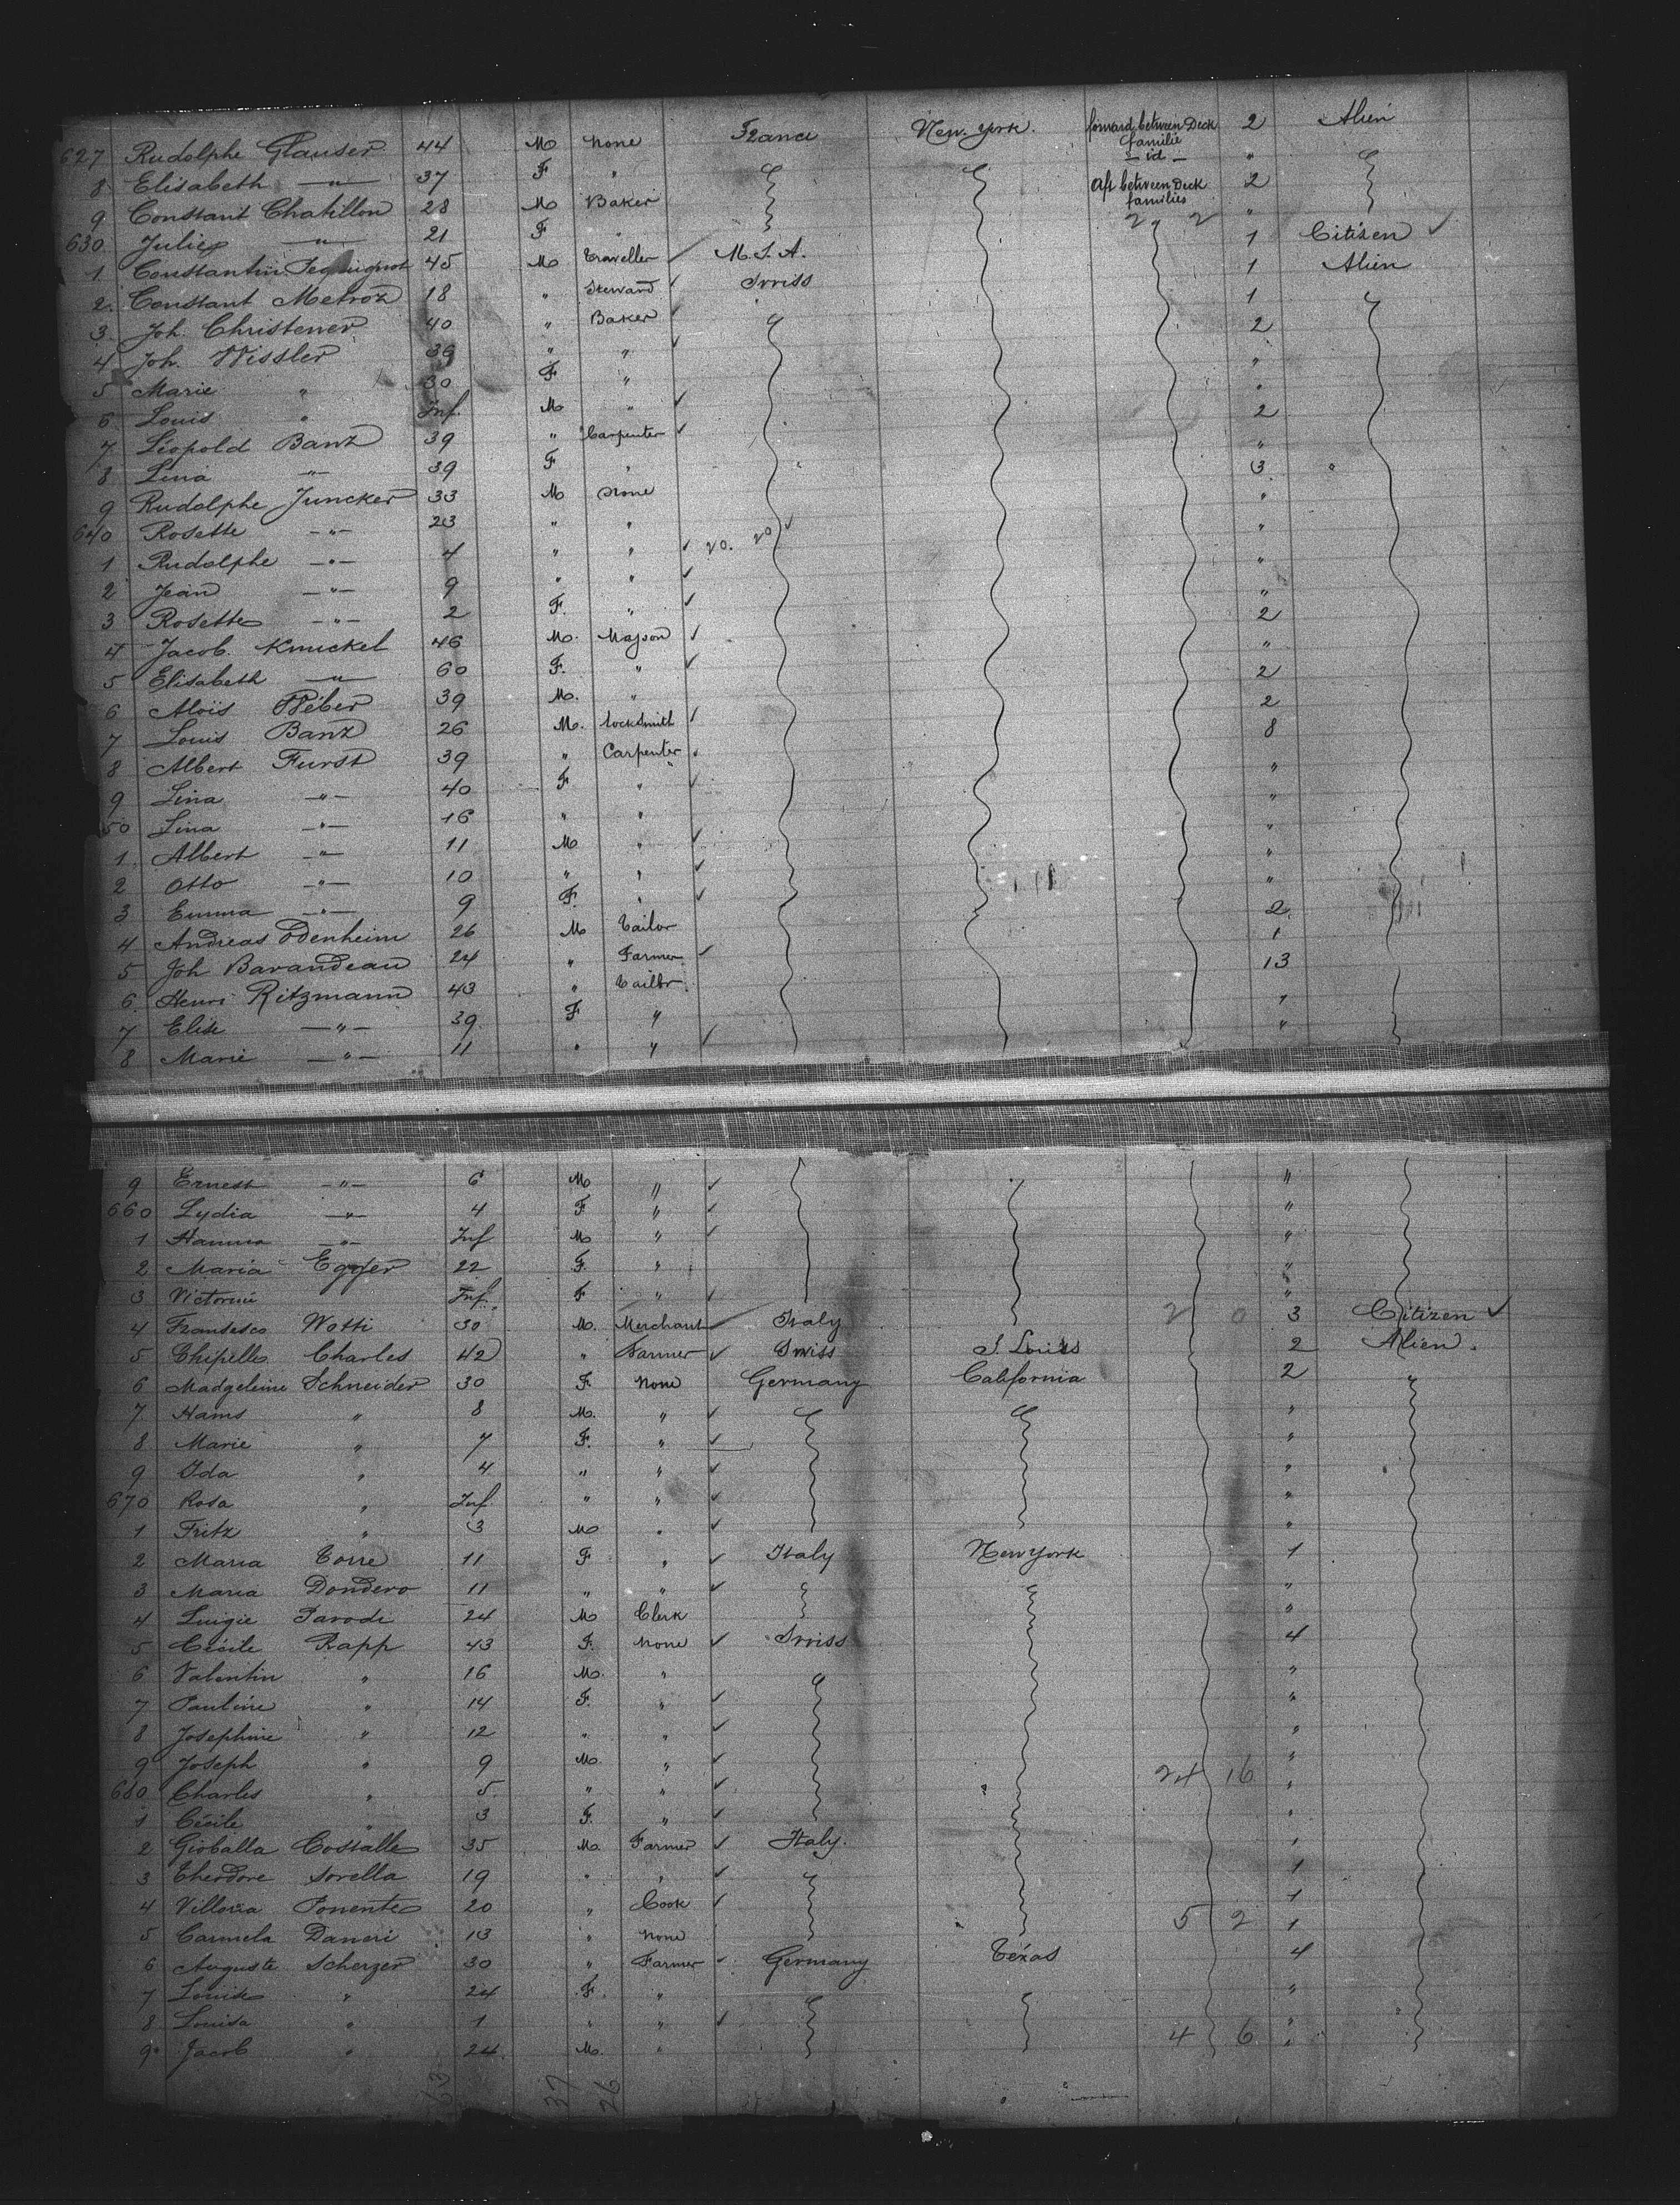 627 Rudolphe Glauser 44 M None France New. York. forward between Deck familie 2 Alien
8 Elisabeth —"— 37 F " — id — "
9 Constant Chatillon 28 M Baker Aft between Deck families 2
630. Julie —"— 21 F " 2 2 "
1. Constantin Pequignot 45 M Traveller ✓ U.S.A. 1 Citizen ✓
2. Constant Metroz 18 " Steward ✓ Swiss 1 Alien
3. Joh. Christener 40 " Baker ✓ 1
4 Joh. Wissler 39 " " ✓ 2
5 Marie " 30 F " "
6 Louis " Inf. M " ✓ "
7 Léopold Banz 39 " Carpenter ✓ 2
8 Lina —"— 39 F " "
9 Rudolphe Juncker 33 M None 3
640 Rosette —"— 23 " " "
1 Rudolphe —"— 4 " " ✓ 20. 20 ✓ "
2 Jean —"— 9 " " ✓ "
3 Rosette —"— 2 F. " ✓ "
4 Jacob. Knuckel 46 M. Masson ✓ 2
5 Elisabeth —"— 60 F. " ✓ "
6 Aloïs Wéber 39 M. " 2
7 Louis Banz 26 M. locksmith ✓ 2
8 Albert Furst 39 " Carpenter ✓ 8
9 Lina —"— 40 F " ✓ "
50 Lina —"— 16 " " "
1. Albert —"— 11 M " ✓ "
2 Otto —"— 10 " " ✓ "
3 Emma —"— 9 F. " ✓ "
4 Andreas Odenheim 26 M Tailor 2.
5 Joh Barandeau 24 " Farmer. ✓ 1
6. Henri Ritzmann 43 " Tailor. 13
7 Elise —"— 39. F " "
8 Marie —"— 11 " " ✓ "
9 Ernest —"— 6 M " ✓ "
660 Lydia —"— 4 F " ✓ "
1 Hanna —"— Inf M " ✓ "
2 Maria Egger 22 F. " "
3 Victorine Inf. F " ✓ "
4 Fransesco Wotti 30 M. Merchant ✓ Italy 2 0 3 Citizen ✓
5 Chipelle Charles 42 " Farmer ✓ Swiss S. Louis 2 Alien.
6 Madgeleine Schneider 30 F. None Germany California 2
7 Hams " 8 M. " ✓ "
8 Marie " 7 F. " ✓ "
9 Ida " 4 " " ✓ "
670 Rosa " Inf. " " ✓ "
1 Fritz " 3 M " ✓ "
2 Maria Torre 11 F " ✓ Italy New York 1
3 Maria Dondero 11 " " ✓ "
4 Luigie Parodi 24 M Clerk "
5 Cécile Rapp 43 F. None ✓ Swiss 4
6 Valentin " 16 M. " "
7 Pauline " 14 F. " ✓ "
8 Josephine " 12 " " ✓ "
9 Joseph " 9 M. " ✓ "
680 Charles " 5. " " ✓ 24 16 "
1 Cécile " 3 F. " ✓ "
2 Giobatta Costalle 35 M. Farmer ✓ Italy. 1
3 Theodore Sorella 19 " " ✓ 1
4 Villoria Ponente 20 " Cook ✓ 1
5 Carmela Daneri 13 " None 5 2 1
6 Auguste Scherzer 30 " Farmer ✓ Germany Téxas 4
7 Louise " 24 F. " "
8 Louisa " 1 " " ✓ "
9 Jacob " 24 M. " 4 6 "
63 37 26